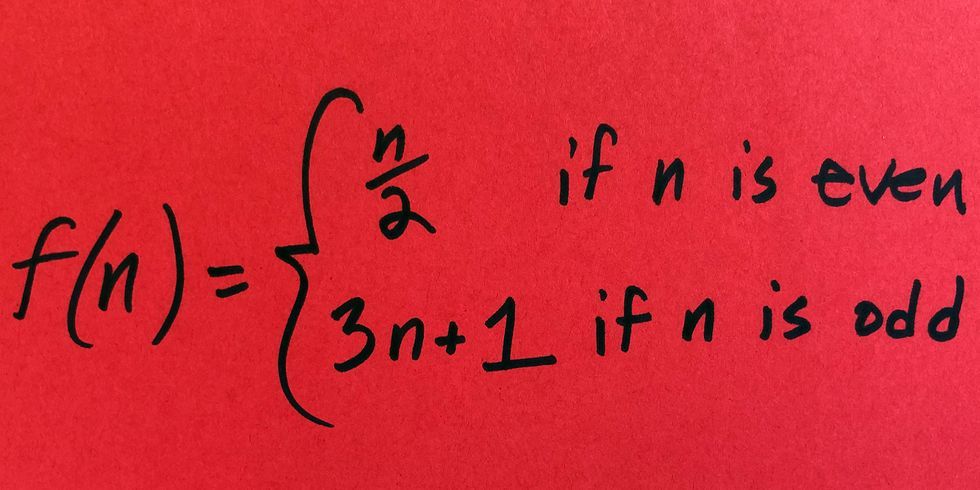 f(n) = { n/2 if n is even
3n+1 if n is odd